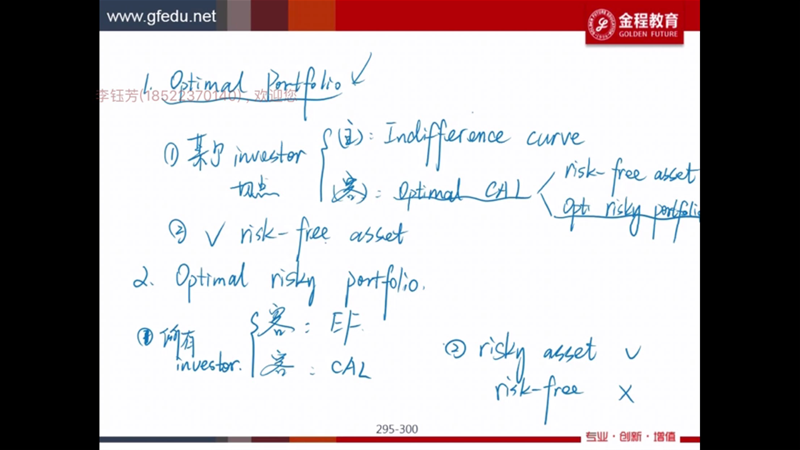 www.gfedu.net
金程教育
GOLDEN FUTURE
1. Optimal Portfolio
李钰芳(18522370140)，欢迎您
① 某个 investor
切点
(主): Indifference curve
(客): Optimal CAL
risk-free asset
opt risky portfolio
② √ risk-free asset
2. Optimal risky portfolio.
① 所有 investor.
客: EF
客: CAL
② risky asset √
risk-free ×
295-300
专业·创新·增值